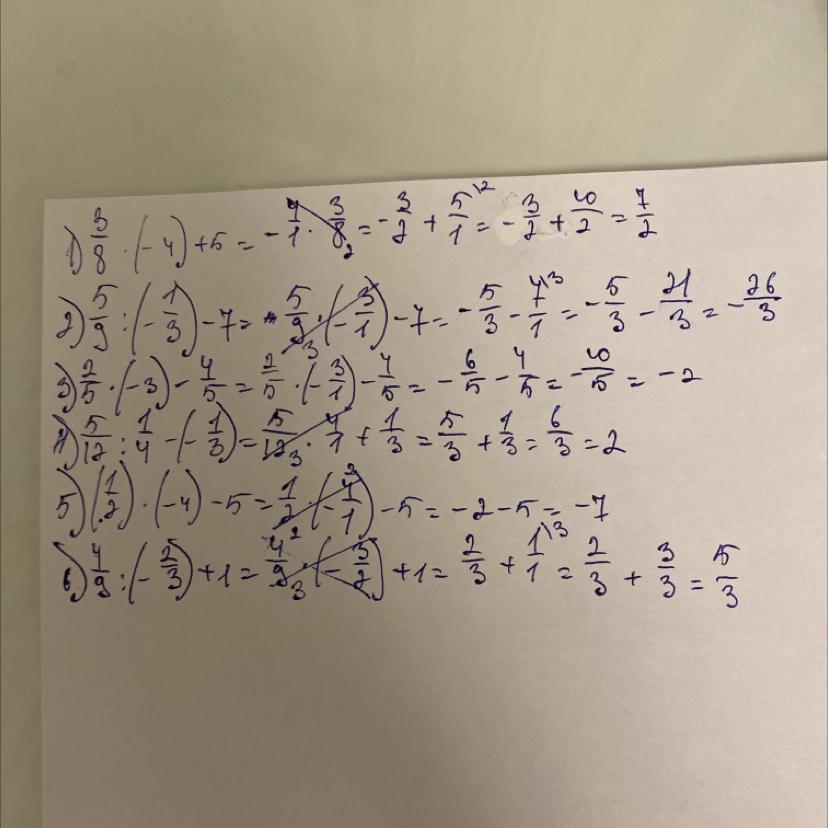 1) 3/8 · (-4) + 5 = -4/1 · 3/8 2 = -3/2 + 5/1 \2 = -3/2 + 10/2 = 7/2
2) 5/9 : (-1/3) - 7 = 5/9 3 · (-3/1) - 7 = -5/3 - 7/1 \3 = -5/3 - 21/3 = -26/3
3) 2/5 · (-3) - 4/5 = 2/5 · (-3/1) - 4/5 = -6/5 - 4/5 = -10/5 = -2
4) 5/12 : 1/4 - (-1/3) = 5/12 3 · 4/1 + 1/3 = 5/3 + 1/3 = 6/3 = 2
5) (1/2) · (-4) - 5 = 1/2 · (-4/1) 2 - 5 = -2 - 5 = -7
6) 4/9 : (-2/3) + 1 = 4/9 2 3 · (-3/2) + 1 = 2/3 + 1/1 \3 = 2/3 + 3/3 = 5/3